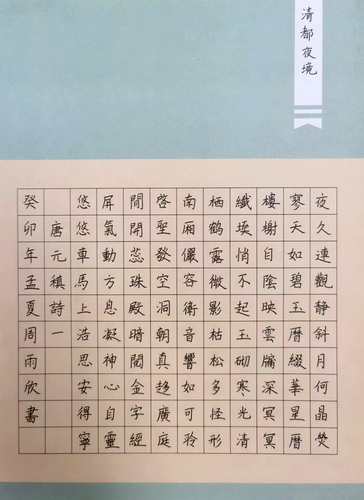 清都夜境
夜久連觀静斜月何晶熒
寥天如碧玉曆綴華星曆
樓榭自陰映雲牖深冥冥
纖埃悄不起玉砌寒光清
栖鹤露微影枯松多怪形
南廂儼容衛音響如可聆
啓聖發空洞朝真趍廣庭
閒開蕊珠殿暗閱金字經
屏氣動方息凝神心自靈
悠悠車馬上浩思安得寧
唐元稹詩一
癸卯年孟夏周雨欣書